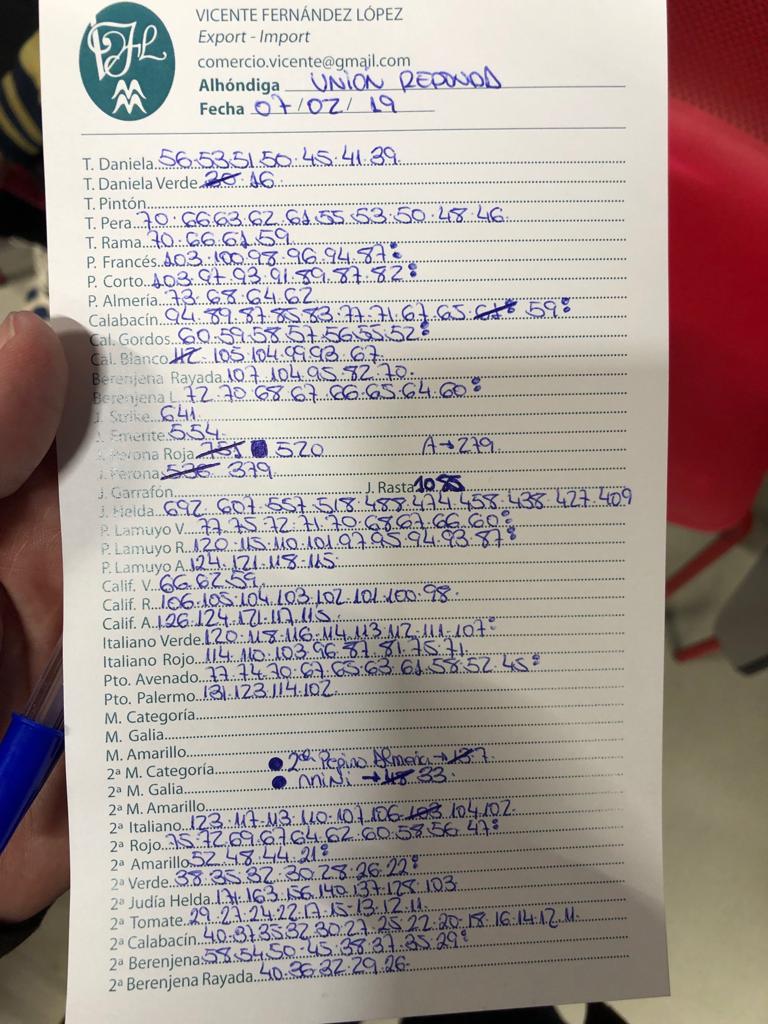 FHL
VICENTE FERNÁNDEZ LÓPEZ
Export - Import
comercio.vicente@gmail.com
Alhóndiga UNIÓN REDONDA
Fecha 07/02/19
T. Daniela 56.53.51.50.45.41.39
T. Daniela Verde 16
T. Pintón
T. Pera 70.66.63.62.61.55.53.50.48.46
T. Rama 70.66.61.59
P. Francés 103.100.98.96.94.87:
P. Corto 103.97.93.91.89.87.82:
P. Almería 73.68.64.62
Calabacín 94.89.87.85.83.77.71.67.65. 59:
Cal. Gordos 60.59.58.57.56.55.52:
Cal. Blanco 112.105.104.99.93.67
Berenjena Rayada 107.104.95.82.70.
Berenjena L. 72.70.68.67.66.65.64.60:
J. Strike 641
J. Emerite 554
J. Perona Roja 751 520 A→279
J. Perona 536 379
J. Garrafón J. Rasta 1085
J. Helda 692.607.557.518.488.474.458.438.427.409
P. Lamuyo V. 77.75.72.71.70.68.67.66.60:
P. Lamuyo R. 120.115.110.101.97.95.94.93.87:
P. Lamuyo A. 124.121.118.115
Calif. V. 66.62.59
Calif. R. 106.105.104.103.102.101.100.98.
Calif. A. 126.124.121.117.115
Italiano Verde 120.118.116.114.113.112.111.107:
Italiano Rojo 114.110.103.96.87.81.75.71
Pto. Avenado 77.74.70.67.65.63.61.58.52.45:
Pto. Palermo 131.123.114.102
M. Categoría
M. Galia
M. Amarillo
2ª M. Categoría 2ª Pepino Almería → 137
2ª M. Galia MINI → 48 33.
2ª M. Amarillo
2ª Italiano 123.117.113.110.107.106.103.104.102
2ª Rojo 75.72.69.67.64.62.60.58.56.47:
2ª Amarillo 52.48.44.21:
2ª Verde 38.35.32.30.28.26.22:
2ª Judía Helda 171.163.156.140.137.128.103
2ª Tomate 29.27.24.22.17.15.13.12.11
2ª Calabacín 40.37.35.32.30.27.25.22.20.18.16.14.12.11
2ª Berenjena 58.54.50.45.38.37.35.29:
2ª Berenjena Rayada 40.36.32.29.26